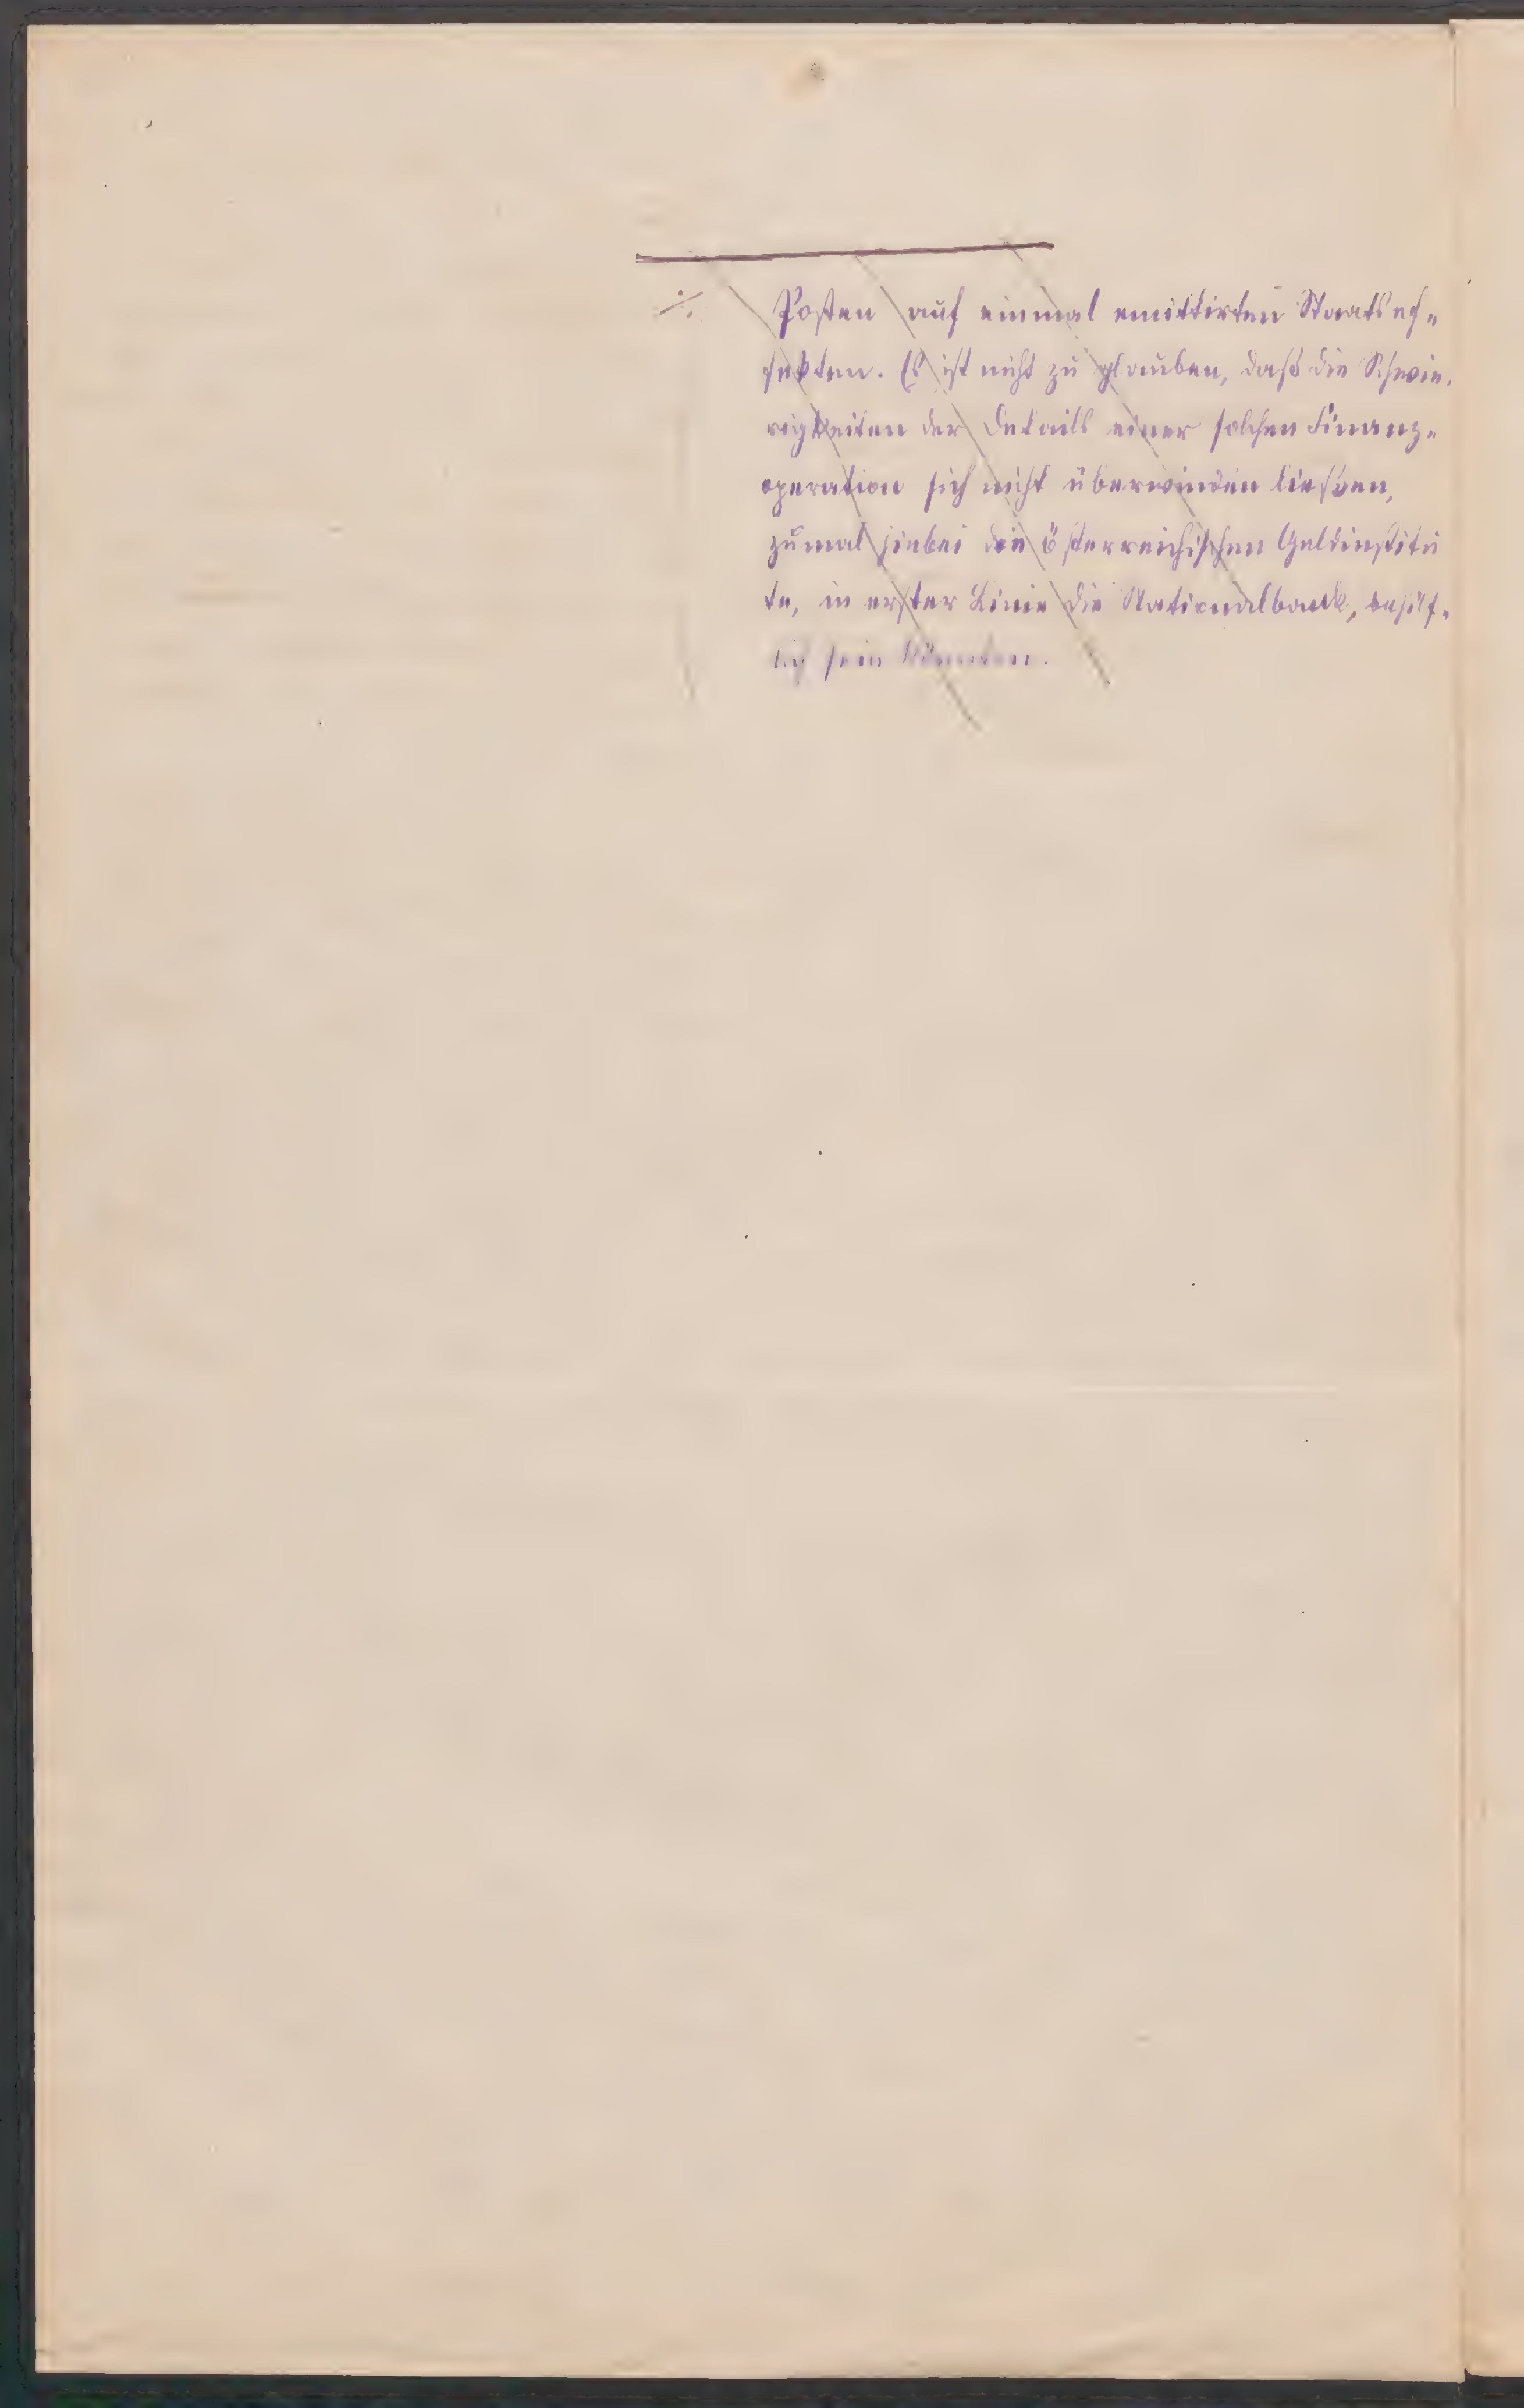 Posten auf einmal emittirten Staatsef-
fekten. Es ist nicht zu glauben, daß die Schwie-
rigkeiten der Details einer solchen Finanz-
operation sich nicht überwinden ließen,
zumal hiebei die österreichischen Geldinstitu
te, in erster Linie die Nationalbank, behilf-
lich sein könnten.